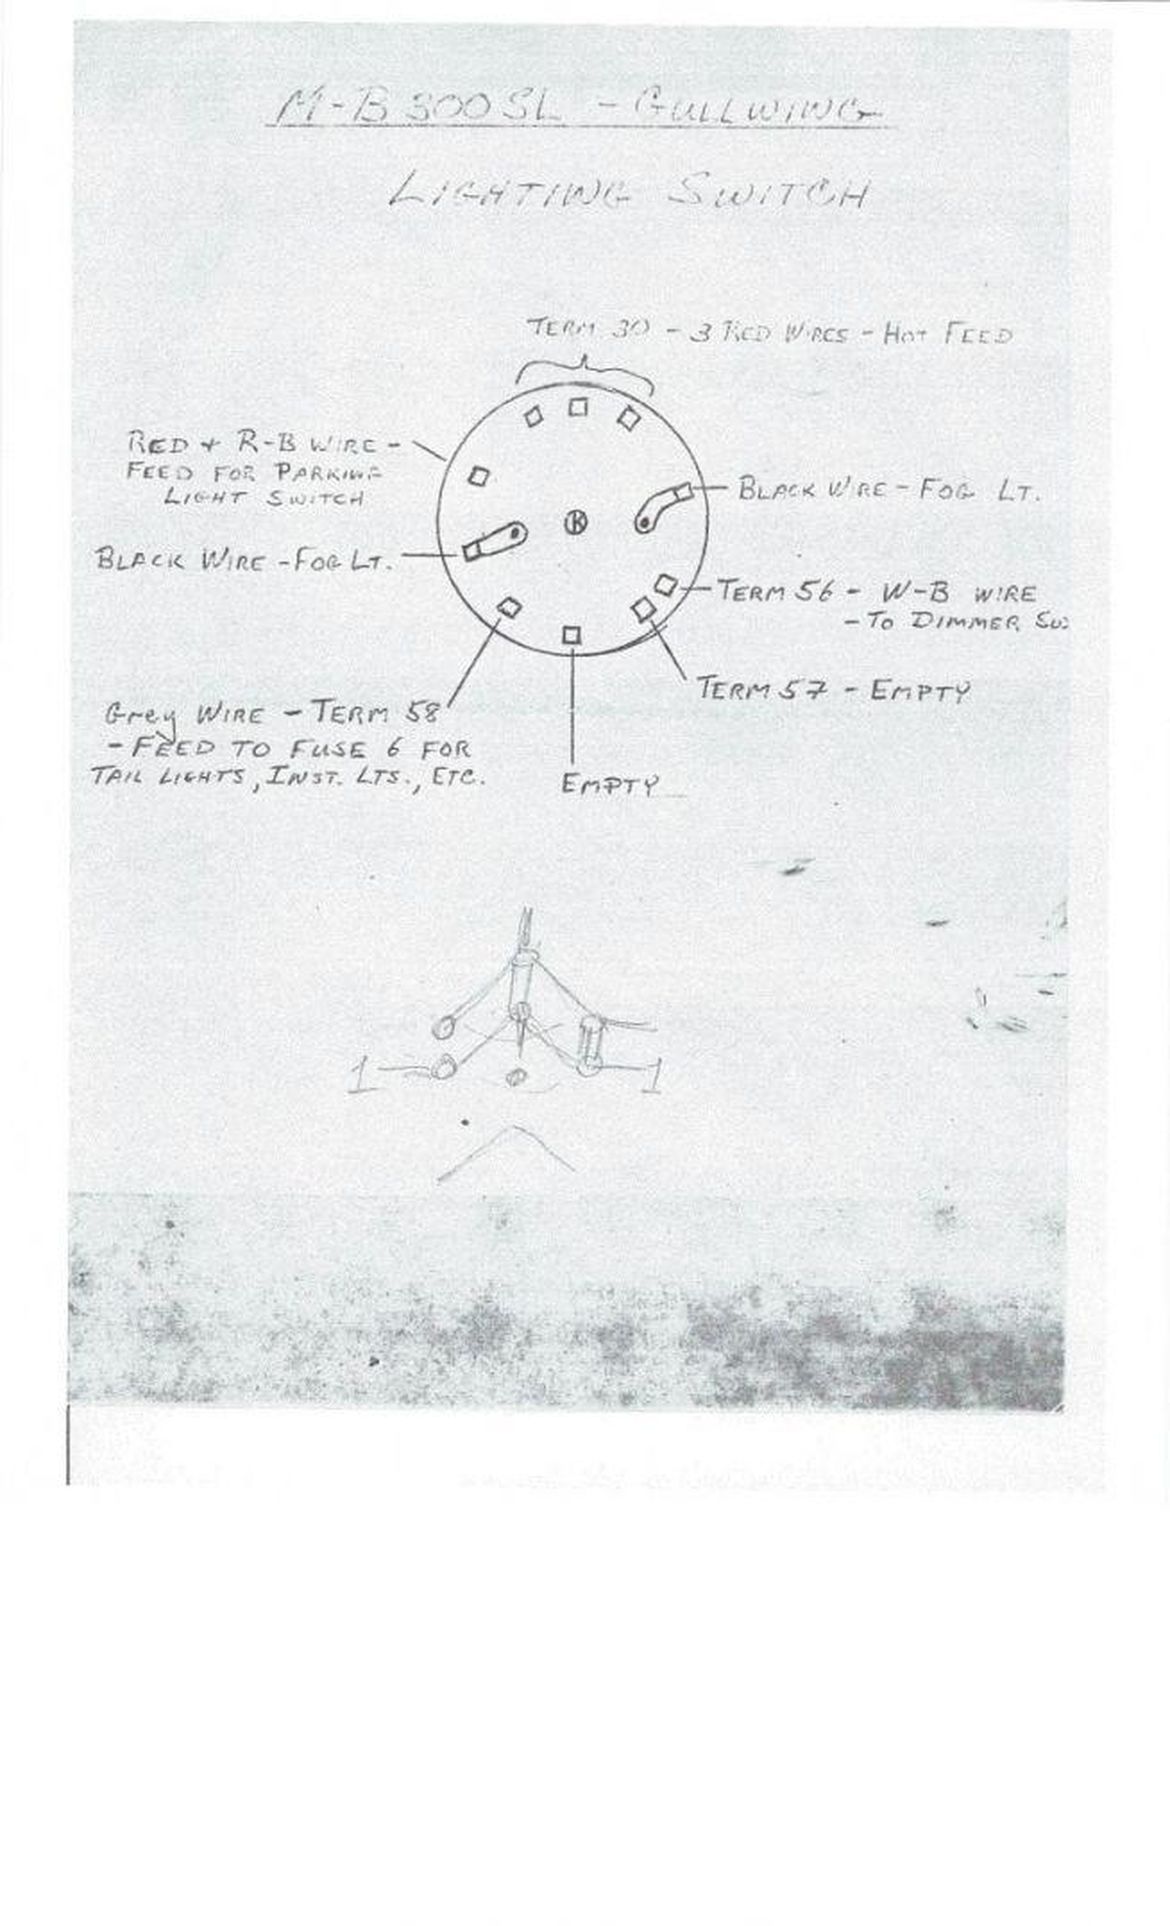 M-B 300SL - GULLWING
LIGHTING SWITCH
TERM 30 - 3 RED WIRES - HOT FEED
RED + R-B WIRE -
FEED FOR PARKING
LIGHT SWITCH
BLACK WIRE - FOG LT.
BLACK WIRE - FOG LT.
K
TERM 56 - W-B WIRE
- TO DIMMER SW
TERM 57 - EMPTY
Grey WIRE - TERM 58
- FEED TO FUSE 6 FOR
TAIL LIGHTS, INST. LTS., ETC.
EMPTY
1 1